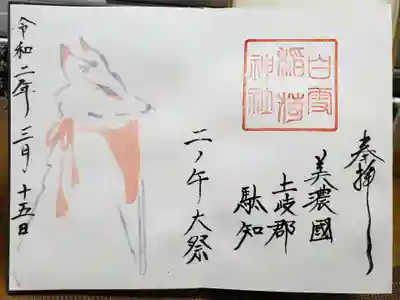 奉拝
美濃國
土岐郡
駄知
白雪
稲荷
神社
二ノ午大祭
令和二年三月十五日